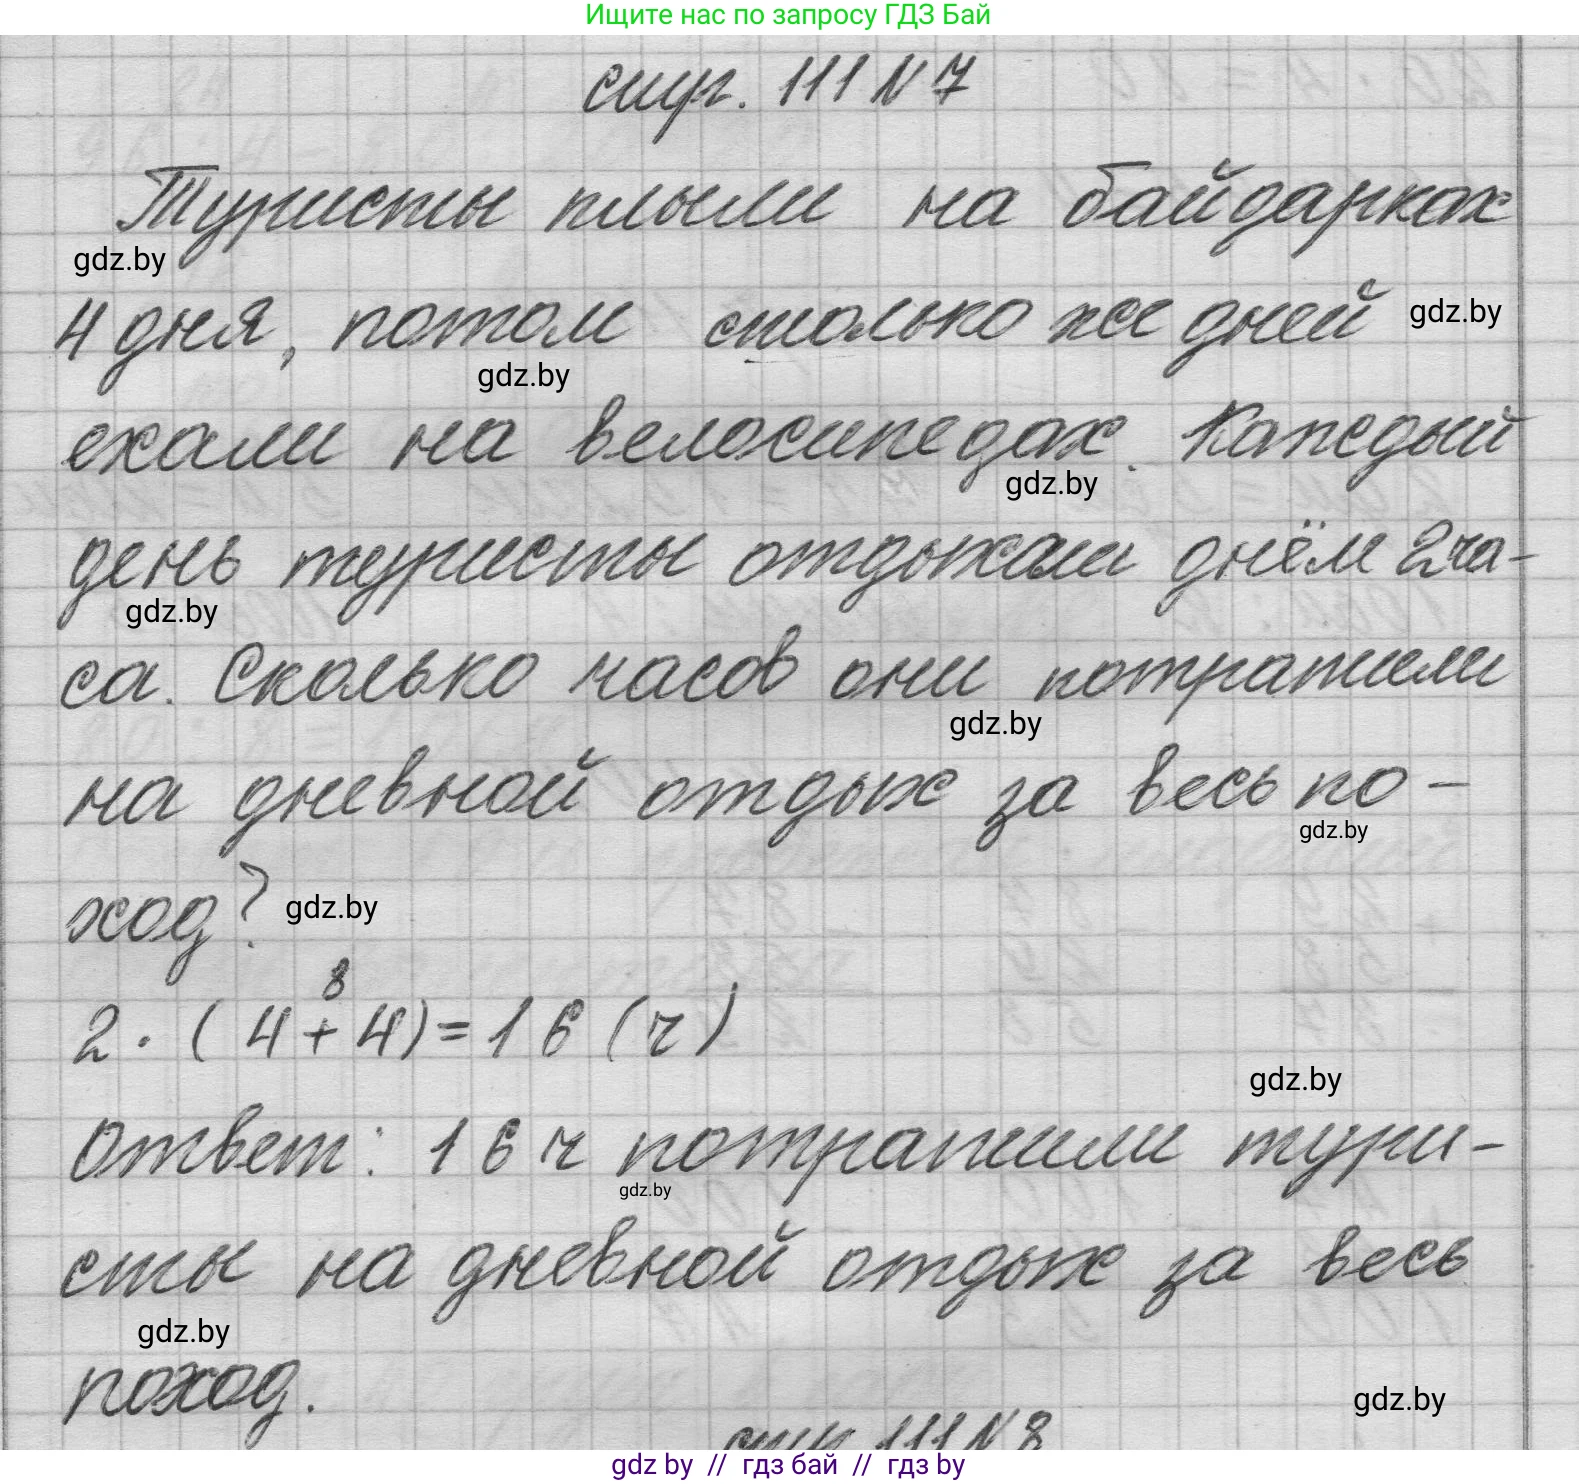 Ищите нас по запросу ГДЗ Бай
стр. 111 N 7
Туристы плыли на байдарках
gdz.by
4 дня, потом столько же дней gdz.by
gdz.by
ехали на велосипедах. Каждый
gdz.by
день туристы отдыхали днём 2 ча-
gdz.by
са. Сколько часов они потратили
gdz.by
на дневной отдых за весь по-
gdz.by
ход? gdz.by
8
2 · (4 + 4) = 16 (ч)
gdz.by
Ответ: 16 ч потратили тури-
gdz.by
сты на дневной отдых за весь
gdz.by
поход.
gdz.by
стр 111 N 8
gdz.by // гдз бай // гдз by